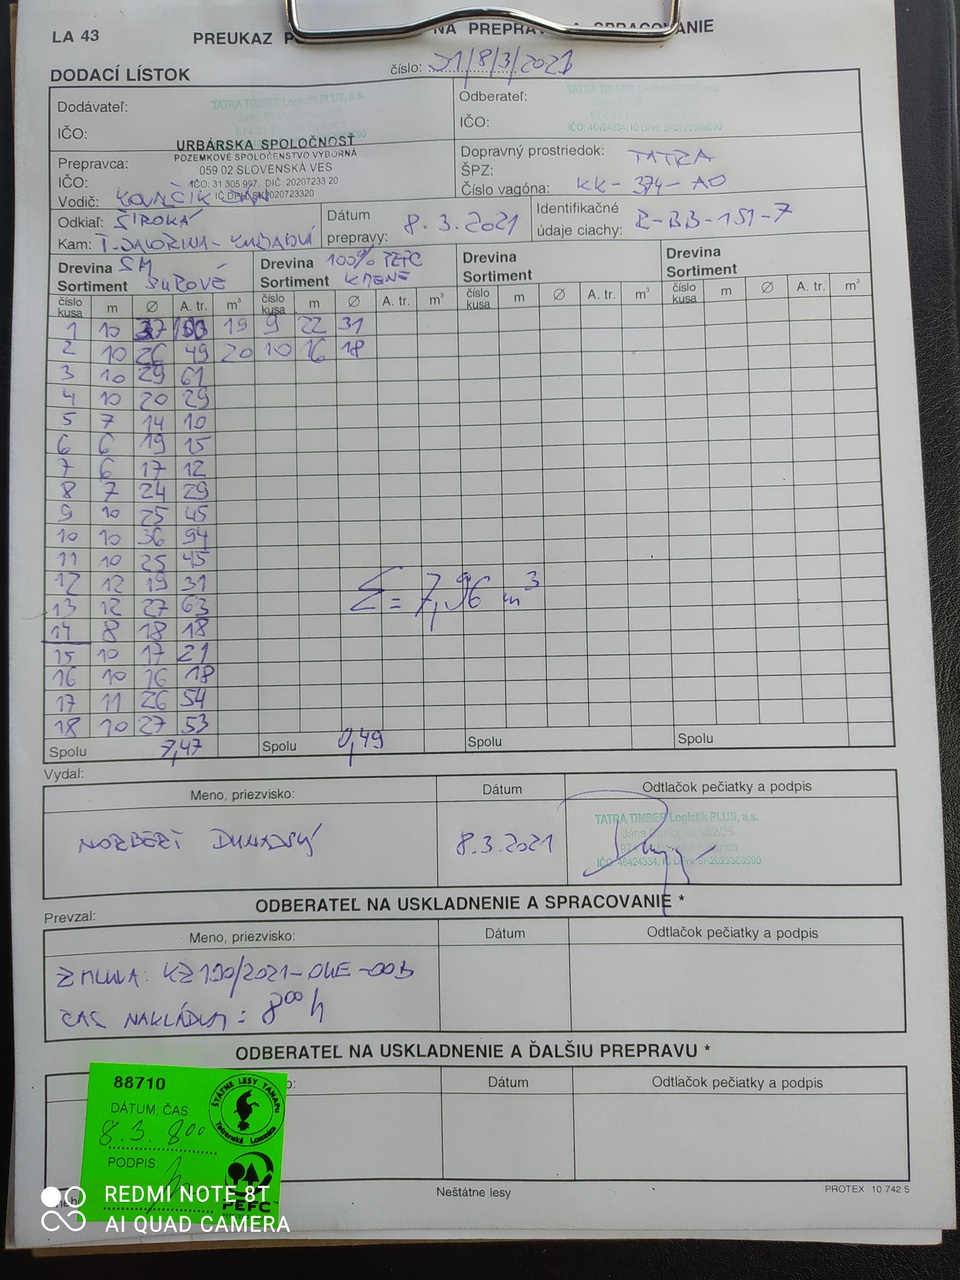 LA 43
PREUKAZ P NA PREPRA A SPRACOVANIE
DODACÍ LÍSTOK
číslo: 21/8/3/2021
Dodávateľ:
TATRA TIMBER Logistik PLUS, a.s.
IČO:
Odberateľ:
TATRA TIMBER Logistik PLUS, a.s.
IČO:
IČO: 46424334, IČ DPH: SK2023509590
URBÁRSKA SPOLOČNOSŤ
POZEMKOVÉ SPOLOČENSTVO VYBORNÁ
059 02 SLOVENSKÁ VES
IČO: 31 305 997, DIČ: 20207233 20
IČ DPH: SK2020723320
Prepravca:
IČO:
Vodič:
Dopravný prostriedok: TATRA
ŠPZ:
Číslo vagóna: KK-374-AO
Odkiaľ: ŠIROKÁ
Kam:
Dátum prepravy: 8.3.2021
Identifikačné údaje ciachy: R-BB-151-7
Drevina SM
Sortiment SUROVÉ
Drevina 100% PEFC
Sortiment KMENE
Drevina
Sortiment
Drevina
Sortiment
číslo kusa m Ø A. tr. m³ číslo kusa m Ø A. tr. m³ číslo kusa m Ø A. tr. m³ číslo kusa m Ø A. tr. m³
1 10 37 19 9 22 31
2 10 26 49 20 10 16 18
3 10 29 61
4 10 20 29
5 7 14 10
6 6 19 15
7 6 17 12
8 7 24 29
9 10 25 45
10 10 36 94
11 10 25 45
12 12 19 31
13 12 27 63
14 8 18 18
15 10 17 21
16 10 16 18
17 11 26 54
18 10 27 53
Σ = 7,96 m³
Spolu 7,47 Spolu 0,49 Spolu Spolu
Vydal:
Meno, priezvisko: Dátum Odtlačok pečiatky a podpis
NORBERT 8.3.2021
TATRA TIMBER Logistik PLUS, a.s.
IČO: 46424334, IČ DPH: SK2023509590
ODBERATEĽ NA USKLADNENIE A SPRACOVANIE *
Prevzal:
Meno, priezvisko: Dátum Odtlačok pečiatky a podpis
ZMLUVA: KZ190/2021-OLE-003
ČAS NAKLÁDKY: 8⁰⁰ h
ODBERATEĽ NA USKLADNENIE A ĎALŠIU PREPRAVU *
Dátum Odtlačok pečiatky a podpis
88710
DÁTUM, ČAS:
8.3. 8⁰⁰
PODPIS:
ŠTÁTNE LESY TANAPu
Tatranská Lomnica
PEFC
Neštátne lesy
PROTEX 10 742 5
REDMI NOTE 8T
AI QUAD CAMERA